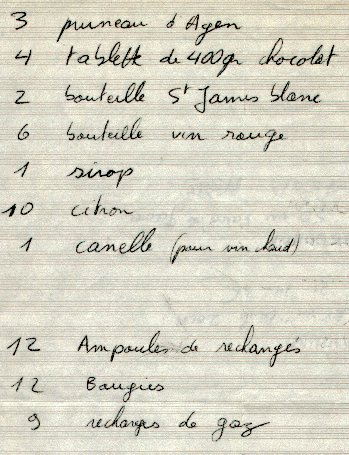 3 pruneau d'Agen
4 tablette de 400gr chocolat
2 bouteille St James blanc
6 bouteille vin rouge
1 sirop
10 citron
1 canelle (pour vin chaud)
12 Ampoules de rechanges
12 Bougies
9 recharges de gaz